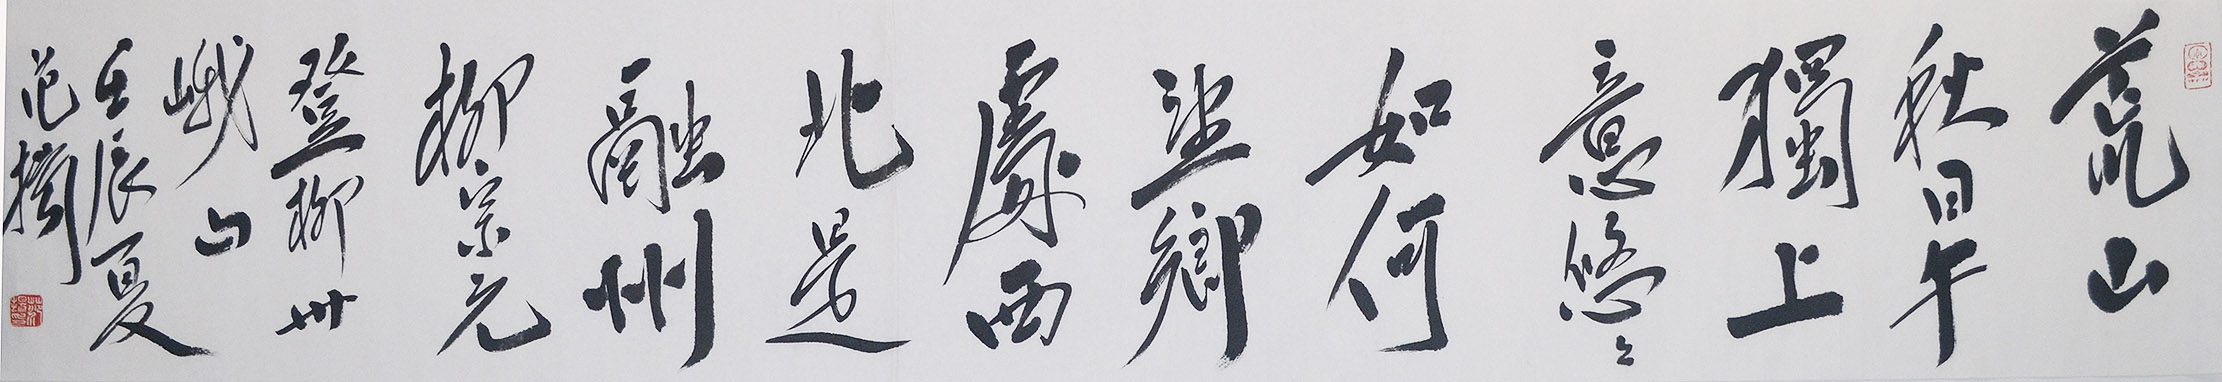 荒山
秋日午
獨上
意悠々
如何
望鄉
處西
北是
融州
柳宗元
登柳州
峨山
壬辰夏
范